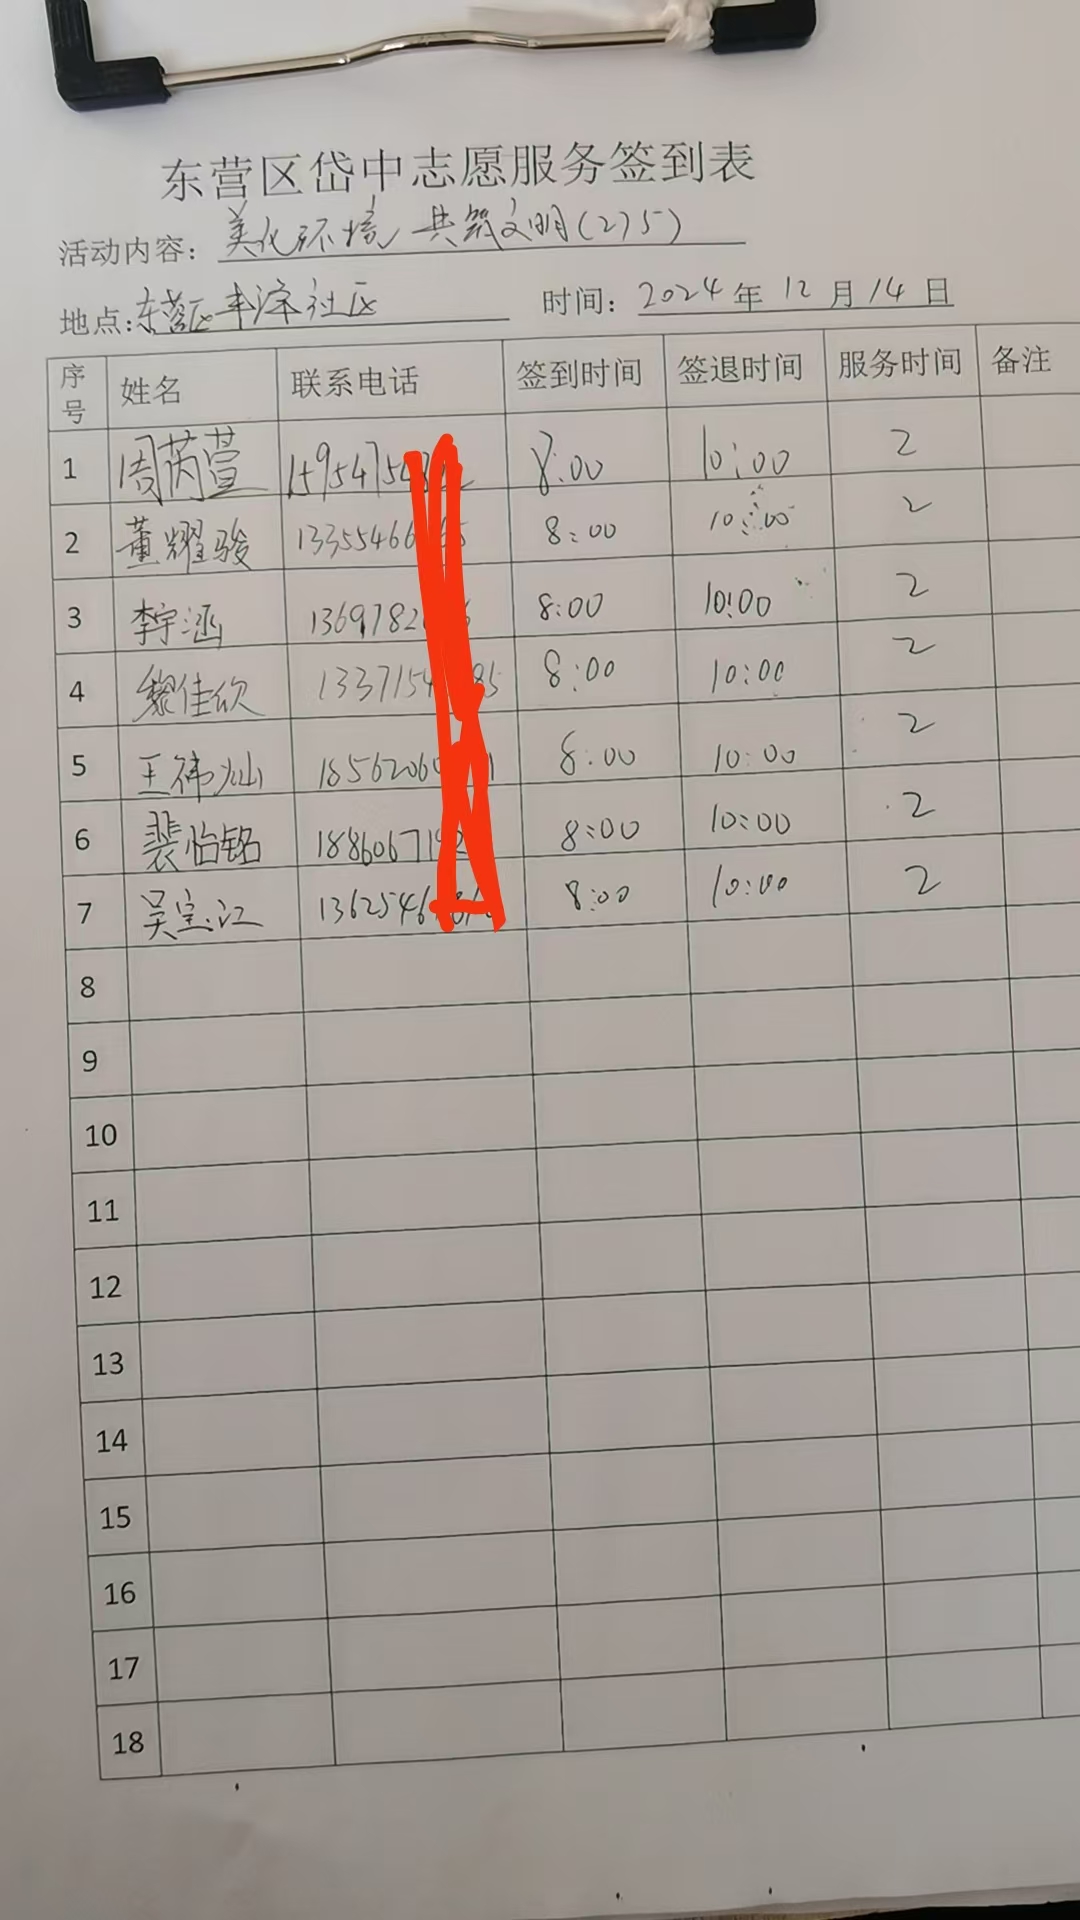 东营区岱中志愿服务签到表
活动内容: 美化环境 共筑文明(275)
地点:东营区丰泽社区 时间: 2024年12月14日
序号 姓名 联系电话 签到时间 签退时间 服务时间 备注
1 周芮萱 8:00 10:00 2
2 董耀骏 8:00 10:00 2
3 李宇涵 8:00 10:00 2
4 黎佳欣 8:00 10:00 2
5 王祎灿 8:00 10:00 2
6 裴怡铭 8:00 10:00 2
7 吴宝江 8:00 10:00 2
8
9
10
11
12
13
14
15
16
17
18